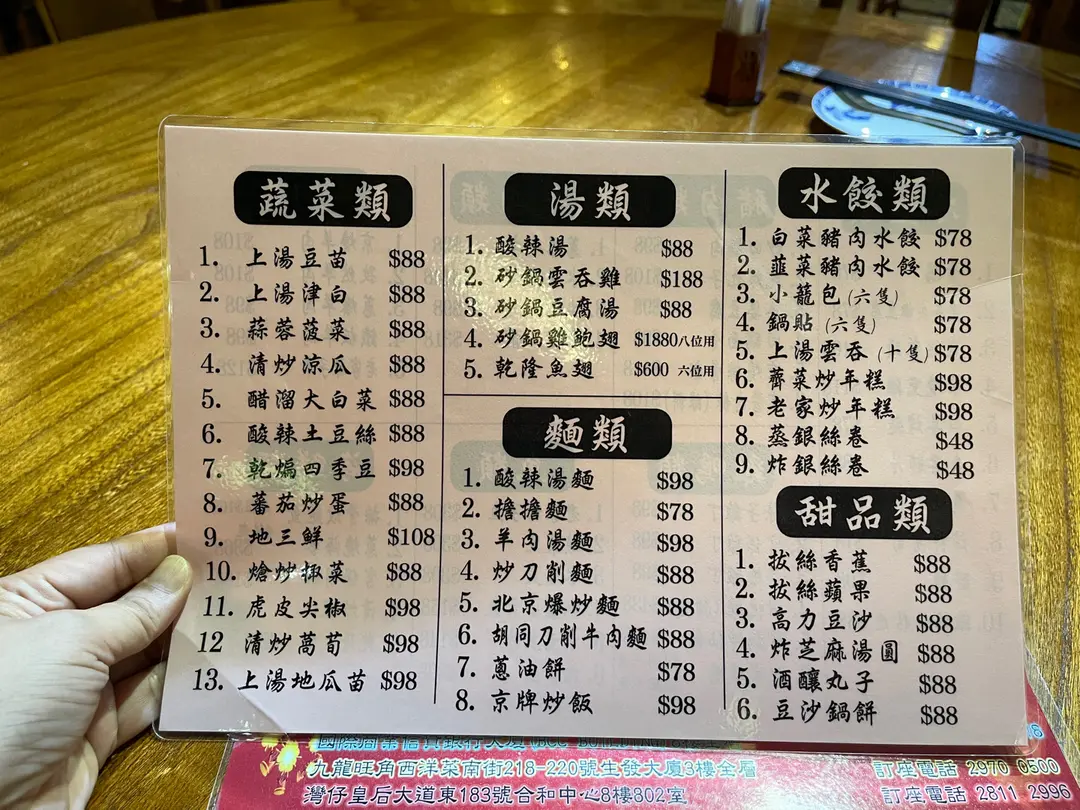 蔬菜類
1. 上湯豆苗 $88
2. 上湯津白 $88
3. 蒜蓉菠菜 $88
4. 清炒涼瓜 $88
5. 醋溜大白菜 $88
6. 酸辣土豆絲 $88
7. 乾煸四季豆 $98
8. 蕃茄炒蛋 $88
9. 地三鮮 $108
10. 熗炒椰菜 $88
11. 虎皮尖椒 $98
12 清炒萵筍 $98
13. 上湯地瓜苗 $98
湯類
1. 酸辣湯 $88
2. 砂鍋雲吞雞 $188
3. 砂鍋豆腐湯 $88
4. 砂鍋雞鮑翅 $1880八位用
5. 乾隆魚翅 $600 六位用
麵類
1. 酸辣湯麵 $98
2. 擔擔麵 $78
3. 羊肉湯麵 $98
4. 炒刀削麵 $88
5. 北京爆炒麵 $88
6. 胡同刀削牛肉麵 $88
7. 蔥油餅 $78
8. 京牌炒飯 $98
水餃類
1. 白菜豬肉水餃 $78
2. 韮菜豬肉水餃 $78
3. 小籠包(六隻) $78
4. 鍋貼 (六隻) $78
5. 上湯雲吞 (十隻) $78
6. 薺菜炒年糕 $98
7. 老家炒年糕 $98
8. 蒸銀絲卷 $48
9. 炸銀絲卷 $48
甜品類
1. 拔絲香蕉 $88
2. 拔絲蘋果 $88
3. 高力豆沙 $88
4. 炸芝麻湯圓 $88
5. 酒釀丸子 $88
6. 豆沙鍋餅 $88
九龍旺角西洋菜南街218-220號生發大廈3樓全層 訂座電話 2970 0500
灣仔皇后大道東183號合和中心8樓802室 訂座電話 2811 2996